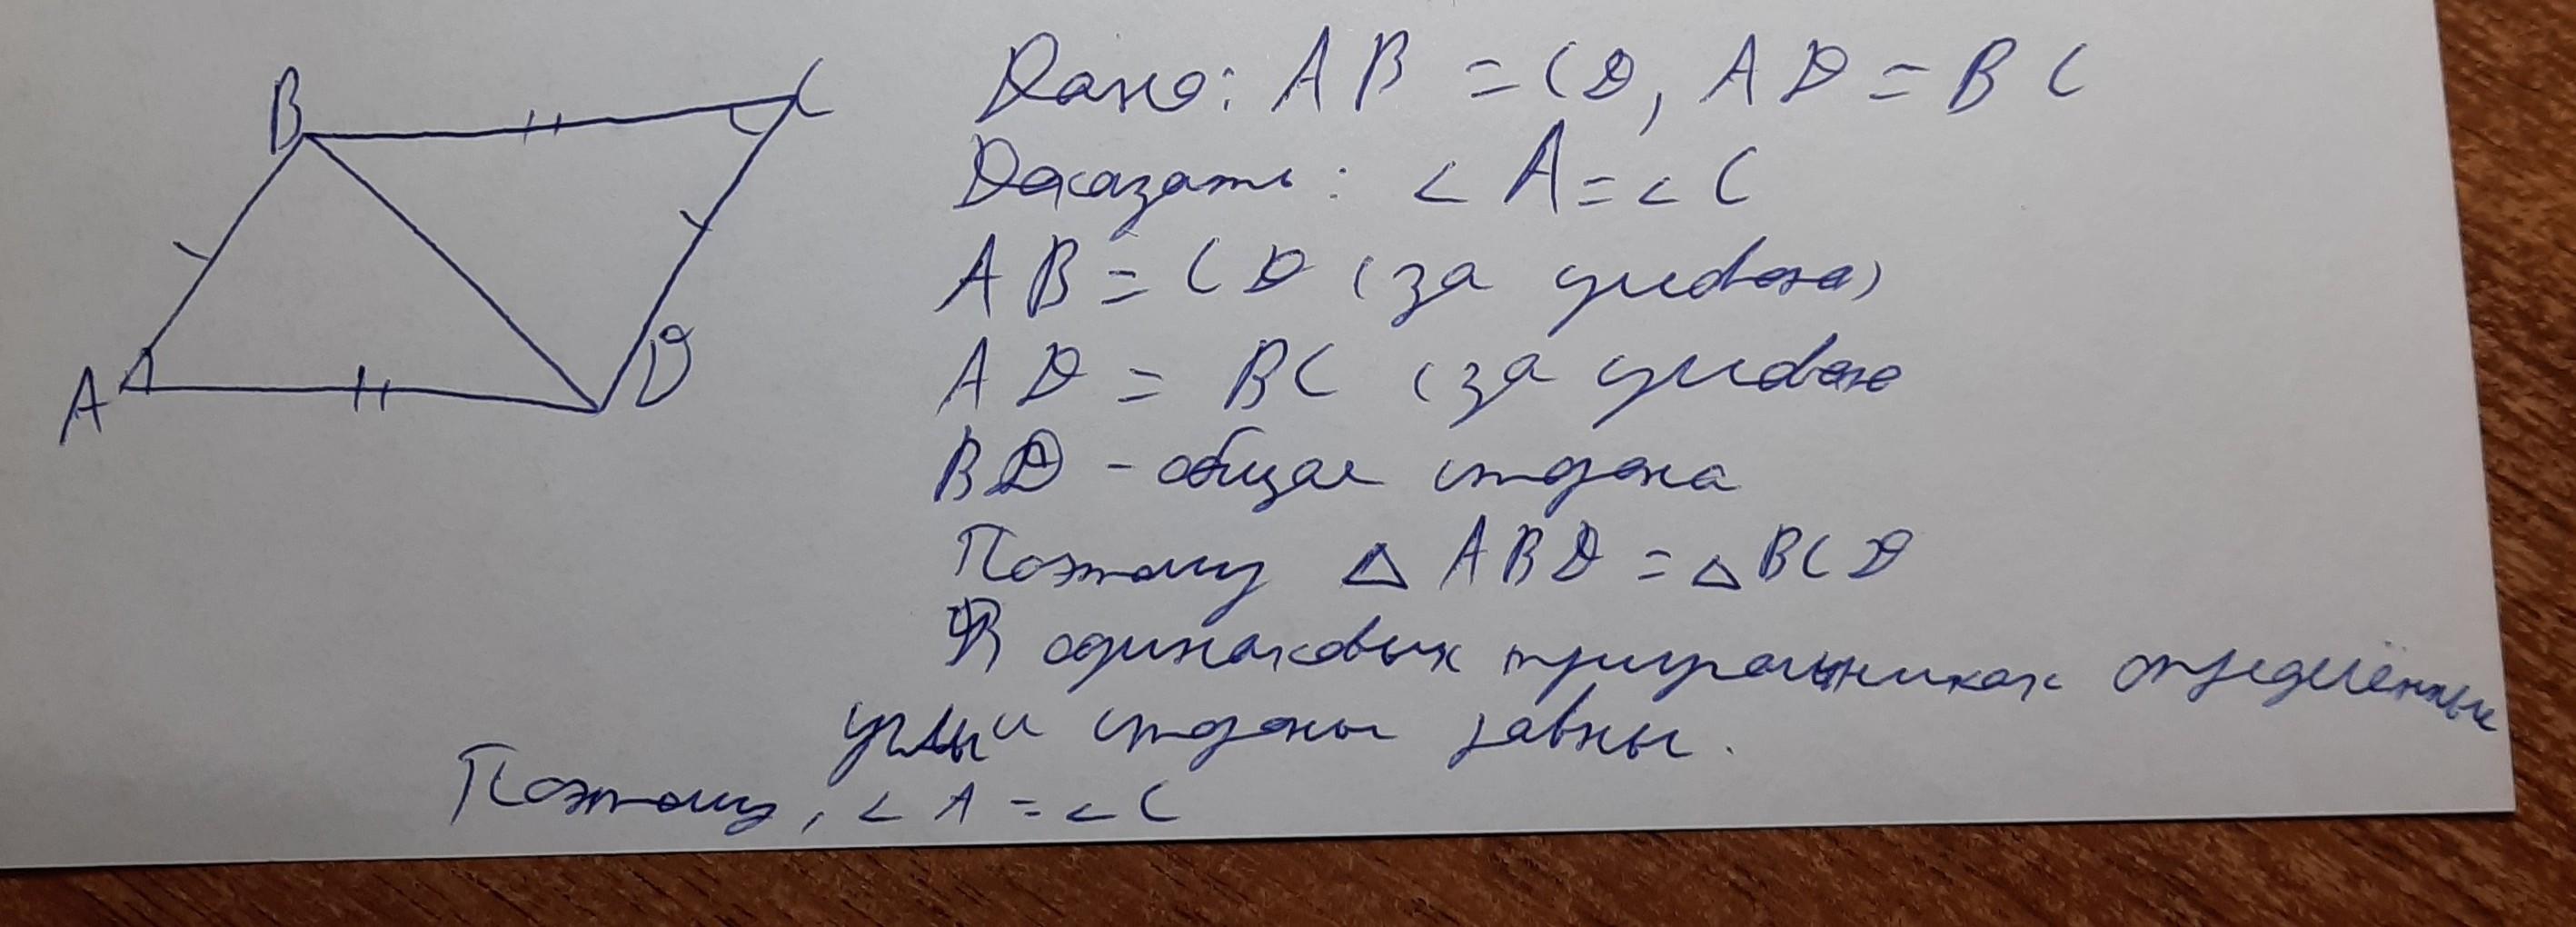 B
C
A
D
Дано: AB = CD, AD = BC
Доказать: ∠A = ∠C
AB = CD (за умовою)
AD = BC (за умовою
BD - общая сторона
Поэтому △ ABD = △ BCD
В одинаковых треугольниках определённые
углы и стороны равны.
Поэтому, ∠A = ∠C